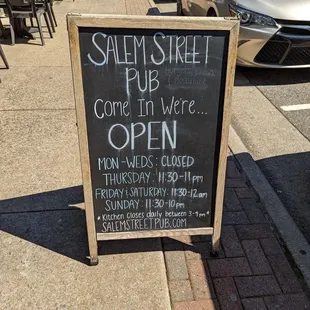 SALEM STREET
PUB
COME IN WE'RE...
OPEN
MON-WEDS: CLOSED
THURSDAY: 11:30-11pm
FRIDAY & SATURDAY: 11:30-12am
SUNDAY: 11:30-10pm
*Kitchen closes daily between 3-4pm*
SALEMSTREETPUB.COM